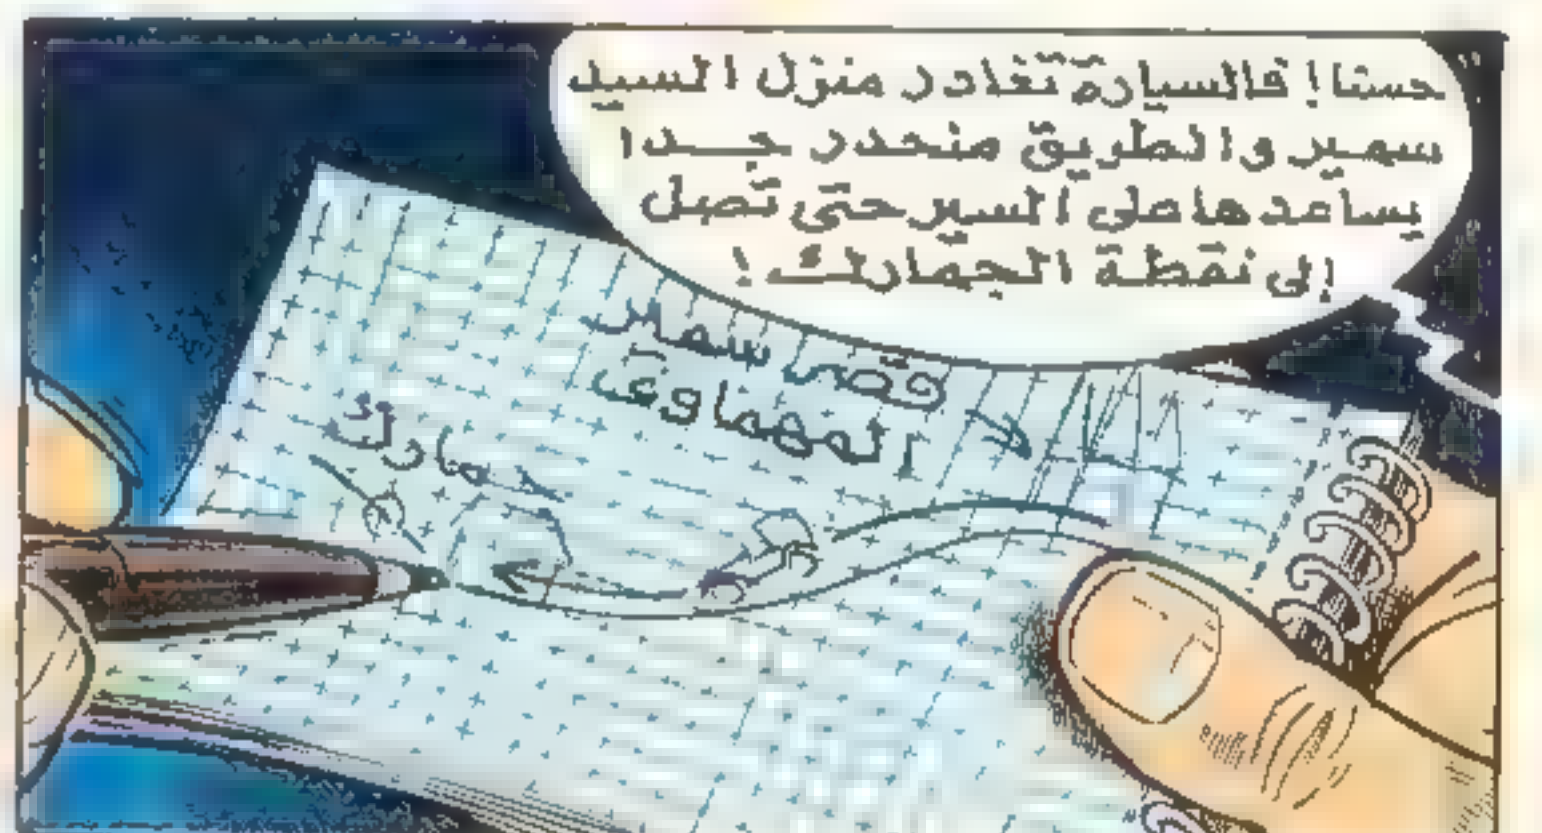 حسنا! فالسيارة تغادر منزل السيد
سمير والطريق منحدر جدا
يساعدها على السير حتى تصل
إلى نقطة الجمارك!
قصر سمير
المهماوى
جمارك